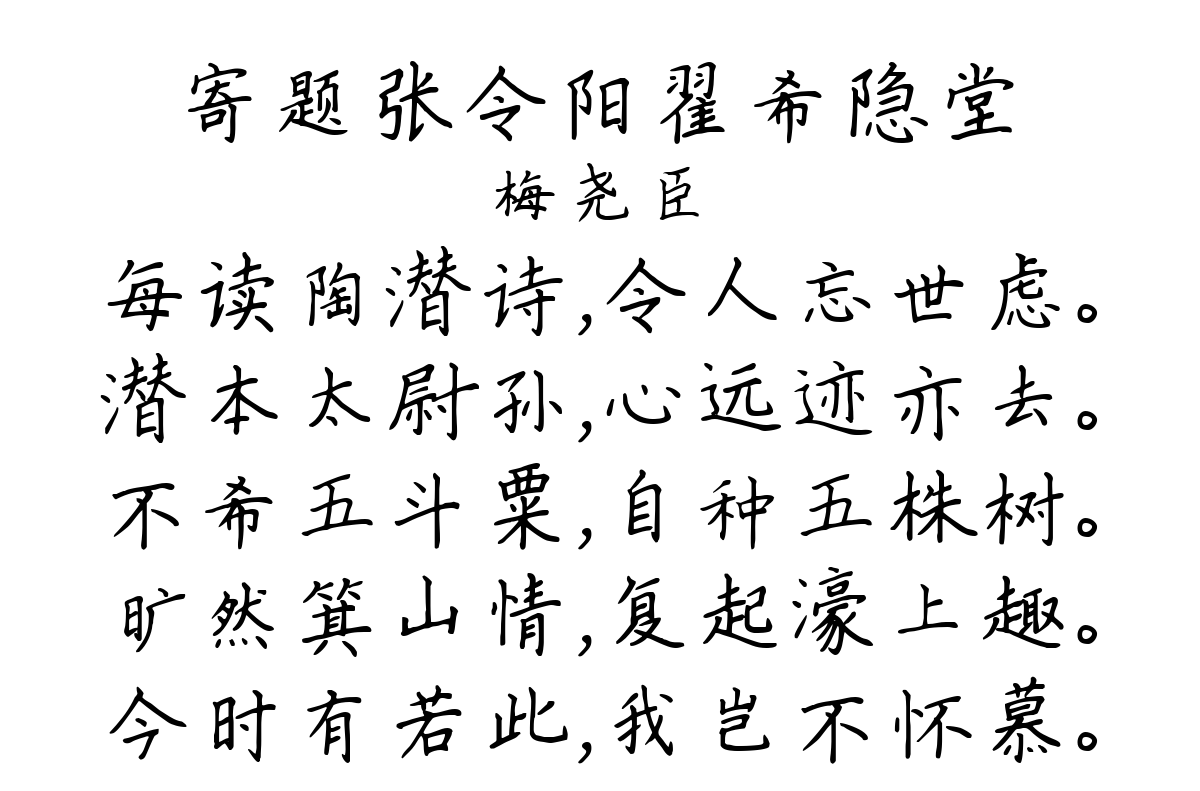 寄题张令阳翟希隐堂
梅尧臣
每读陶潜诗,令人忘世虑。
潜本太尉孙,心远迹亦去。
不希五斗粟,自种五株树。
旷然箕山情,复起濠上趣。
今时有若此,我岂不怀慕。